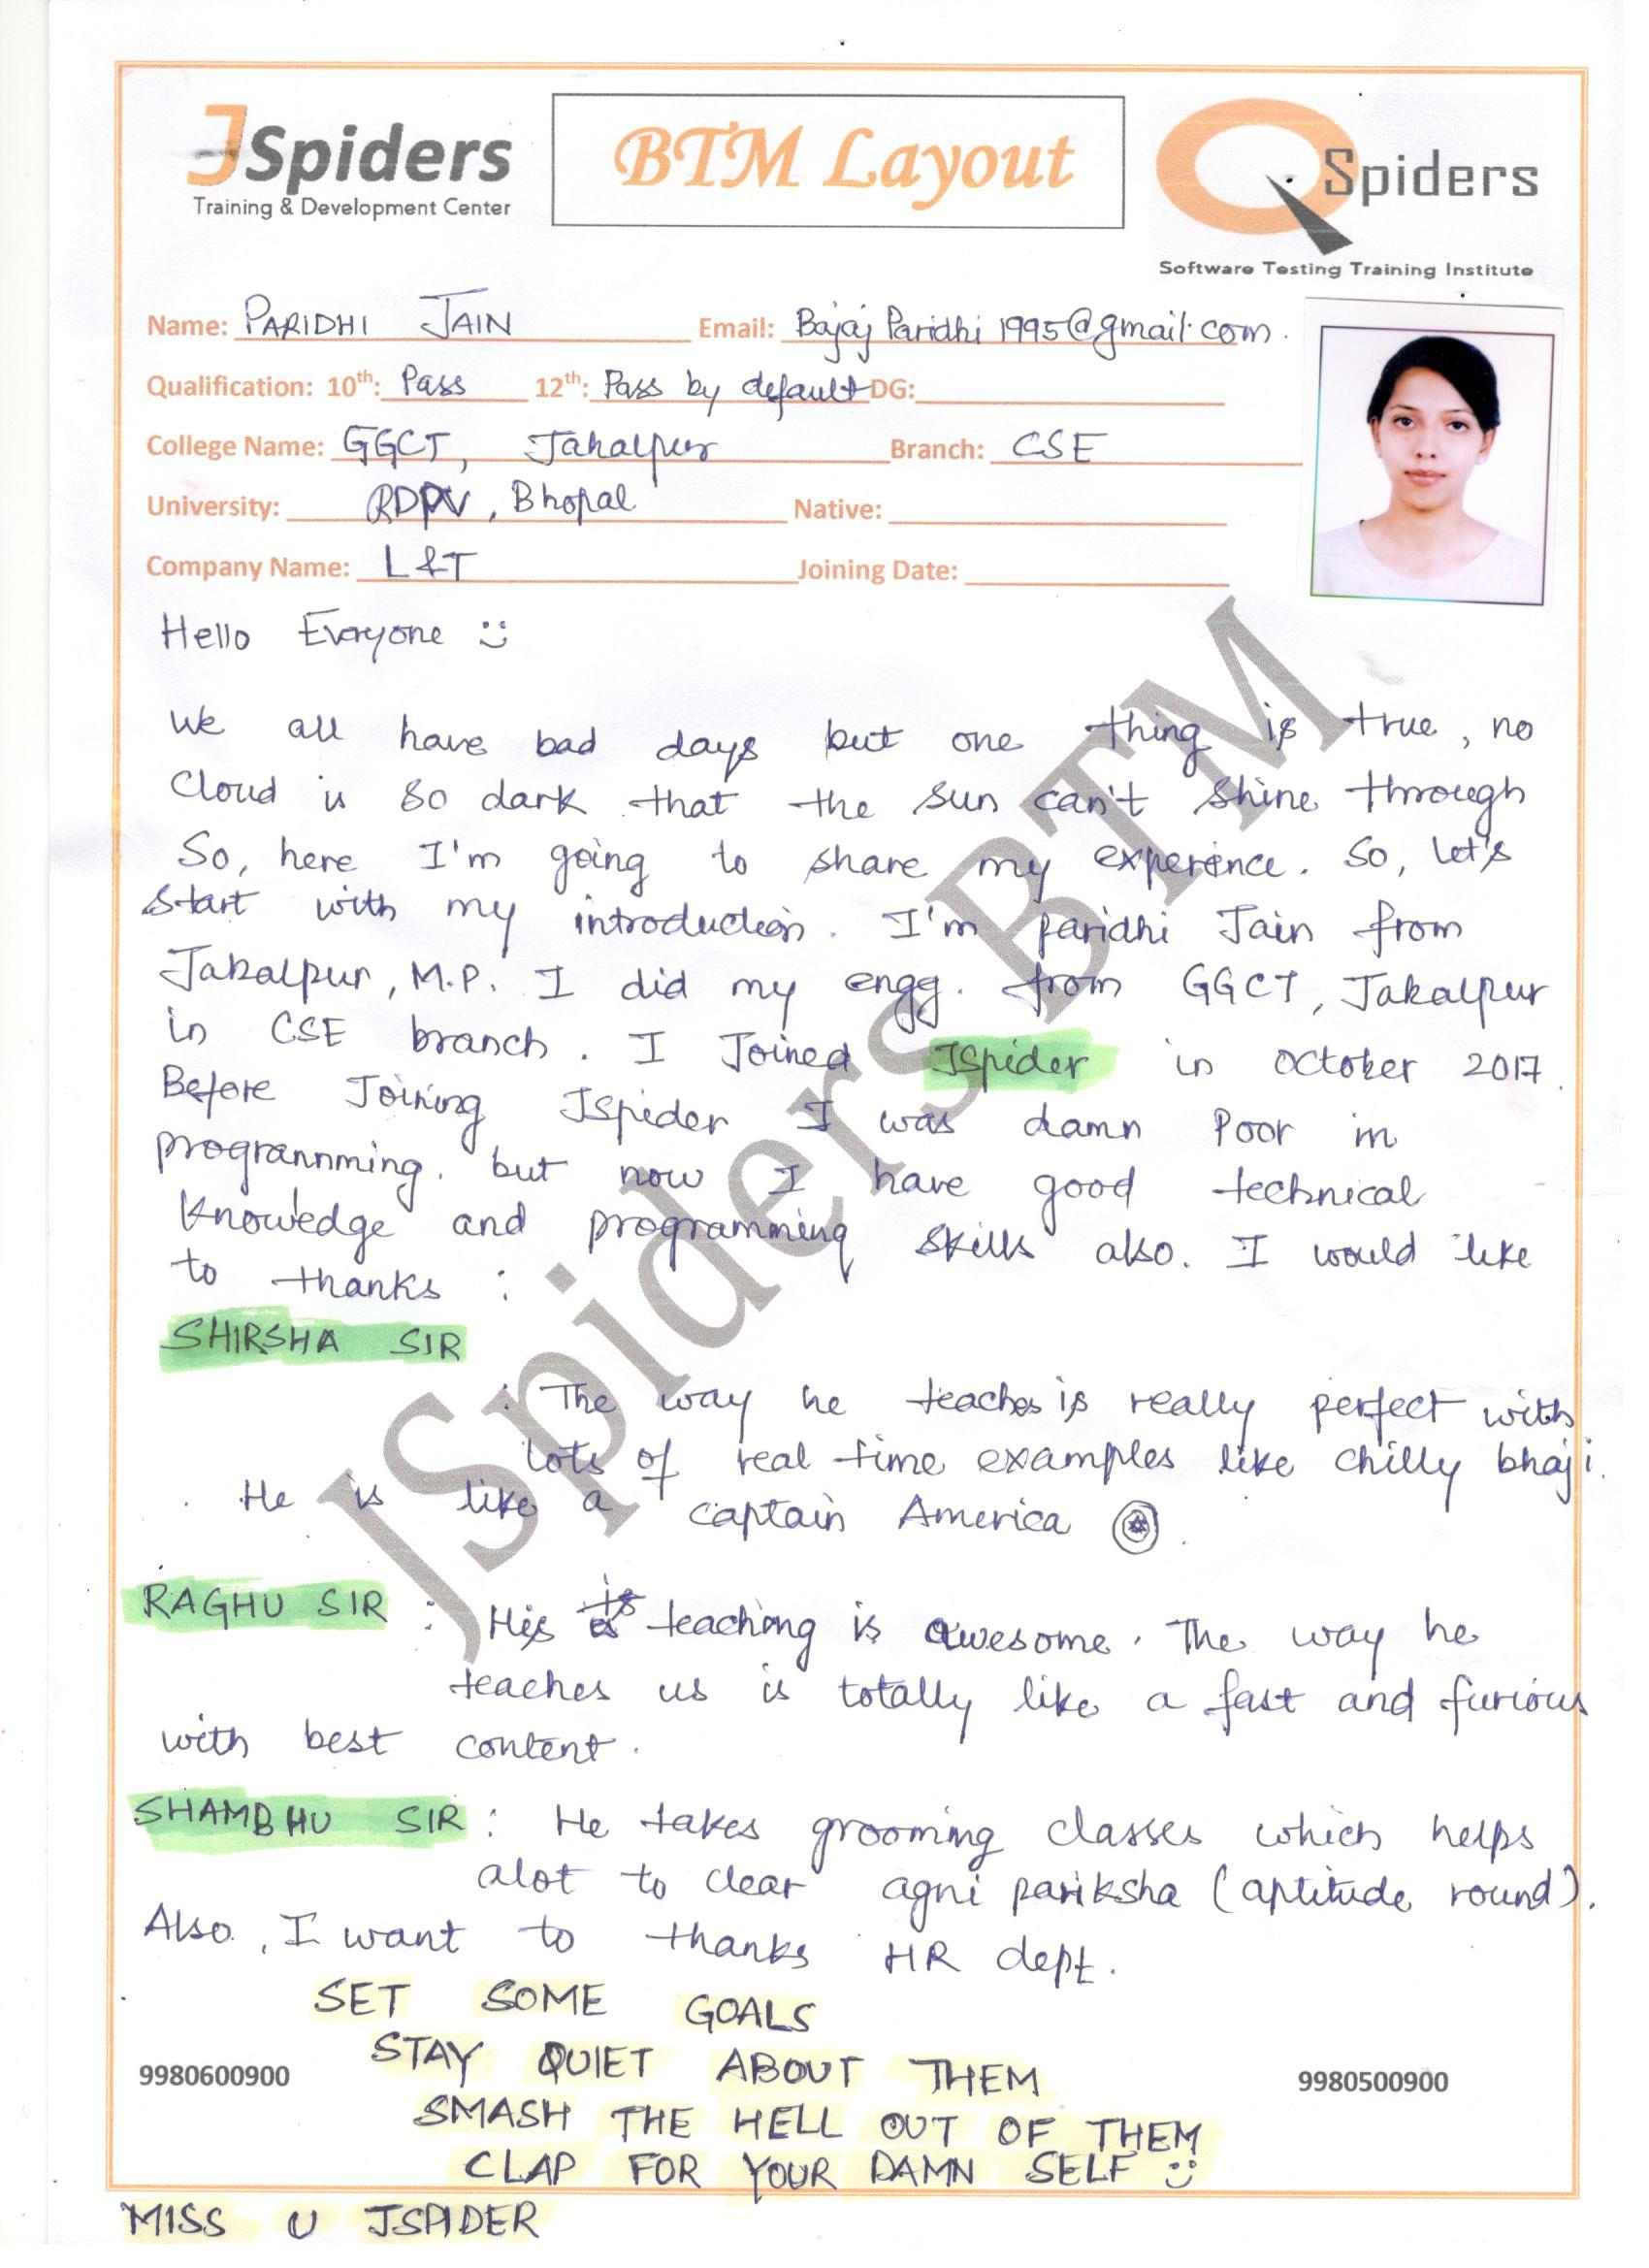 JSpiders
Training & Development Center
BTM Layout
QSpiders
Software Testing Training Institute
Name: PARIDHI JAIN Email: Bajaj Paridhi 1995@gmail.com.
Qualification: 10th: Pass 12th: Pass by default DG:
College Name: GGCT, Jabalpur Branch: CSE
University: RDPV, Bhopal Native:
Company Name: L&T Joining Date:
Hello Everyone :)
We all have bad days but one thing is true, no
cloud is so dark that the sun can't shine through
So, here I'm going to share my experence. So, let's
start with my introduction. I'm paridhi Jain from
Jabalpur, M.P. I did my engg. from GGCT, Jabalpur
in CSE branch. I Joined JSpider in october 2017.
Before Joining JSpider I was damn Poor in
programnming. but now I have good technical
knowledge and programming skills also. I would like
to thanks :
SHIRSHA SIR
: The way he teaches is really perfect with
lots of real time examples like chilly bhaji.
He is like a captain America .
RAGHU SIR : His is teaching is awesome. The way he
teaches us is totally like a fast and furious
with best content.
SHAMBHU SIR : He takes grooming classes which helps
alot to clear agni pariksha (aptitude round).
Also, I want to thanks HR dept.
SET SOME GOALS
STAY QUIET ABOUT THEM
9980600900 9980500900
SMASH THE HELL OUT OF THEM
CLAP FOR YOUR DAMN SELF :)
MISS U JSPIDER
JSpiders BTM